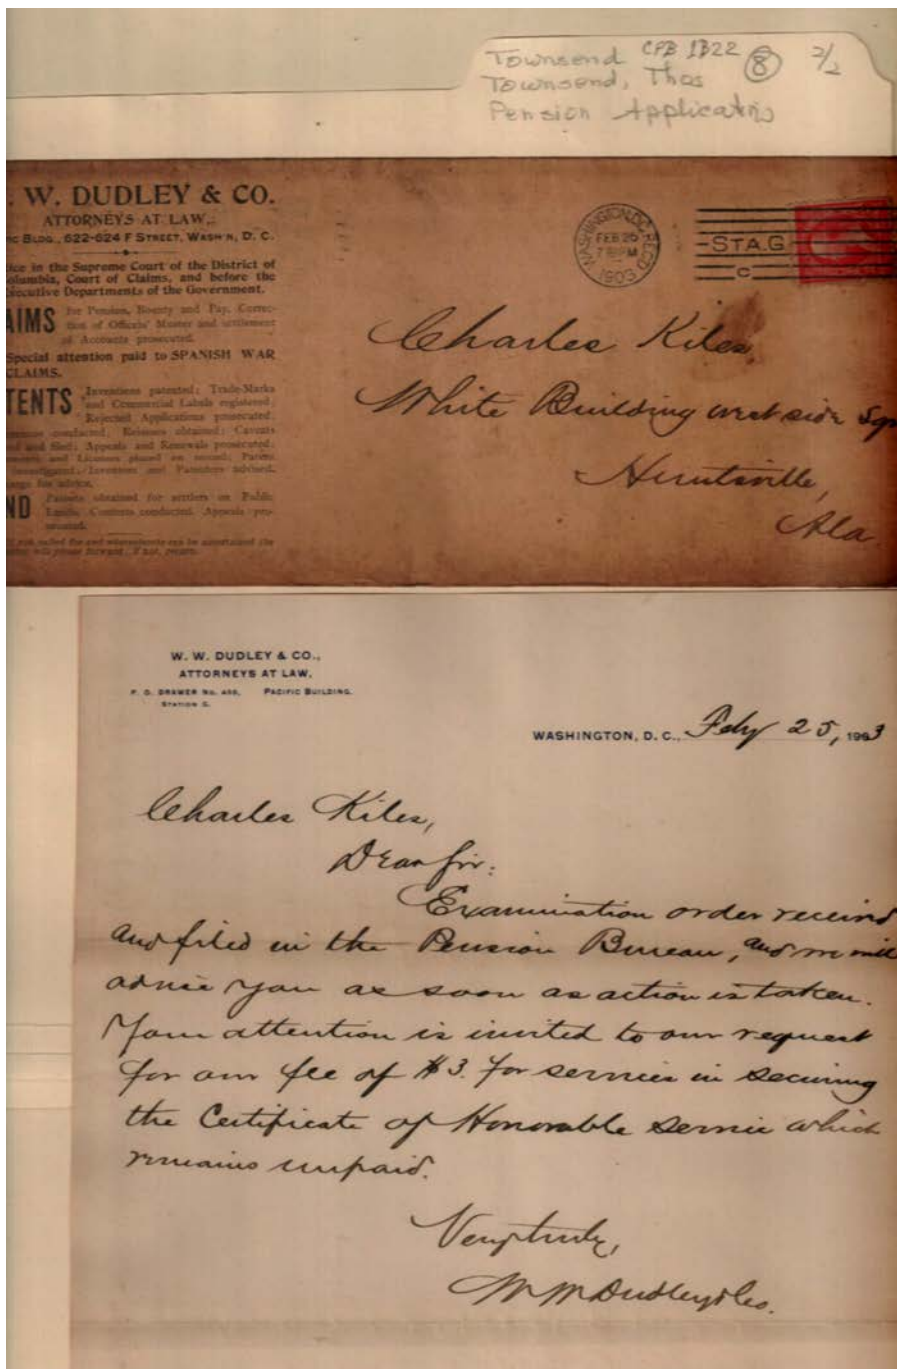 Townsend CPB 1B22 8 2/2
Townsend, Thos
Pension Applicatns
. W. DUDLEY & CO.
ATTORNEYS AT LAW,
IC BLDG., 622-624 F STREET, WASH'N, D. C.
ice in the Supreme Court of the District of
olumbia, Court of Claims, and before the
xecutive Departments of the Government.
AIMS for Pension, Bounty and Pay, Correc-
tion of Officers' Muster and settlement
of Accounts prosecuted.
Special attention paid to SPANISH WAR
CLAIMS.
TENTS Inventions patented; Trade-Marks
and Commercial Labels registered;
Rejected Applications prosecuted.
conducted; Reissues obtained; Caveats
and filed; Appeals and Renewals prosecuted;
and Licenses placed on record; Patent
investigated; Inventors and Patentees advised.
arge for advice.
ND Patents obtained for settlers on Public
Lands. Contests conducted. Appeals pro-
secuted.
not called for and whereabouts can be ascertained the
will please forward. If not, return.
WASHINGTON, D.C. REC'D
FEB 25
PM
1903
STA. G
C
Charles Kiles,
White Building west side Sqr
Huntsville,
Ala.
W. W. DUDLEY & CO.,
ATTORNEYS AT LAW,
P. O. DRAWER No. PACIFIC BUILDING.
STATION G.
WASHINGTON, D. C., Feby 25, 1903
Charles Kiles,
Dear Sir:
Examination order received
and filed in the Pension Bureau, and we will
advise you as soon as action is taken.
Your attention is invited to our request
for our fee of $3. for service in securing
the Certificate of Honorable service which
remains unpaid.
Very truly,
W W Dudley & Co.